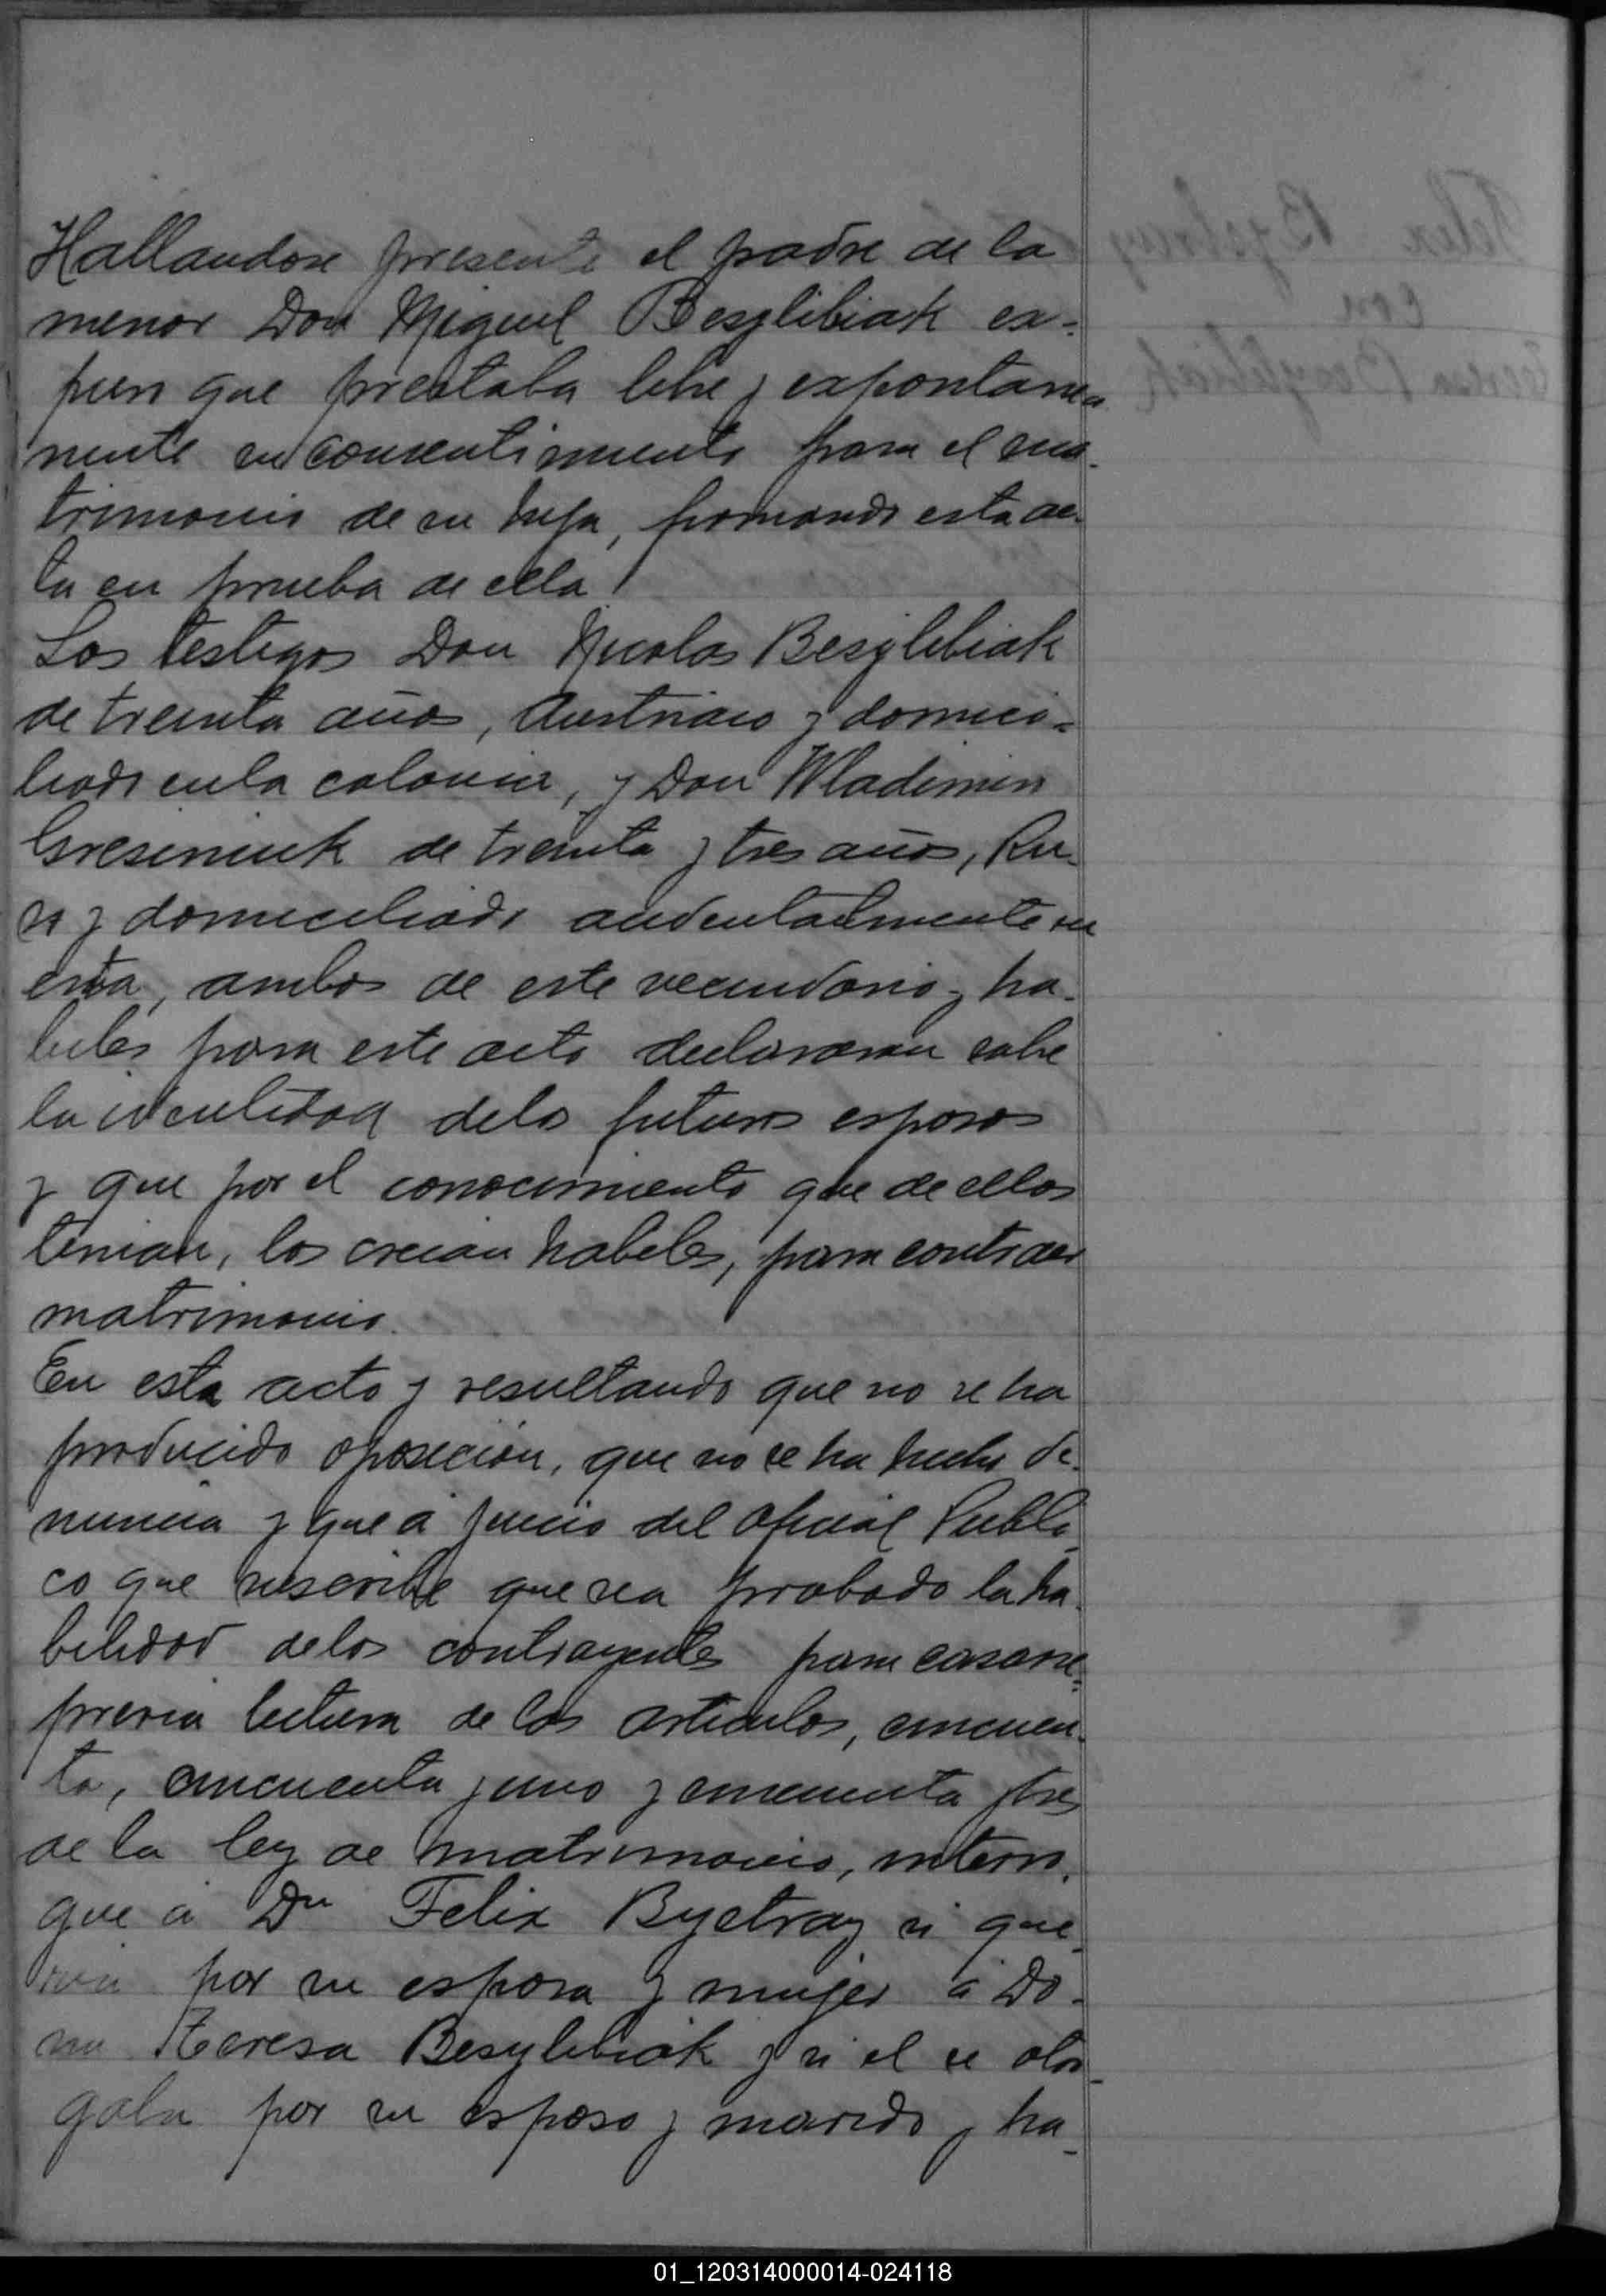 Hallandose presente el padre de la
menor Don Miguel Besglibiak ex-
puso que prestaba libre y expontanea
mente su consentimiento para el ma-
trimonio de su hija, firmando esta ac-
ta en prueba de ella.
Los testigos Don Nicolas Besylibiak
de treinta años, Austriaco y domici-
liado en la colonia, y Don Wladimiro
Gresiniuk de treinta y tres años, Ru-
so y domiciliado accidentalmente en
esta, ambos de este vecindario y ha-
biles para este acto declararon sobre
la identidad de los futuros esposos
y que por el conocimiento que de ellos
tenian, los creian habiles, para contraer
matrimonio.
En esta acto y resultando que no se ha
producido oposicion, que no se ha hecho de-
nuncia y que a juicio del oficial Publi-
co que suscribe que sea probado la ha-
bilidad de los contrayentes para casarse-
previa lectura de los articulos, cincuen-
ta, cincuenta y uno y cincuenta y tres
de la ley de matrimonio, interro-
gue a Dn Felix Byctray si que-
ria por su esposa y mujer a Do-
na Teresa Besylibiak y si el se otor-
gaba por su esposo y marido y ha-
Felix Bystray
con
Teresa Besylibiak
01_120314000014-024118